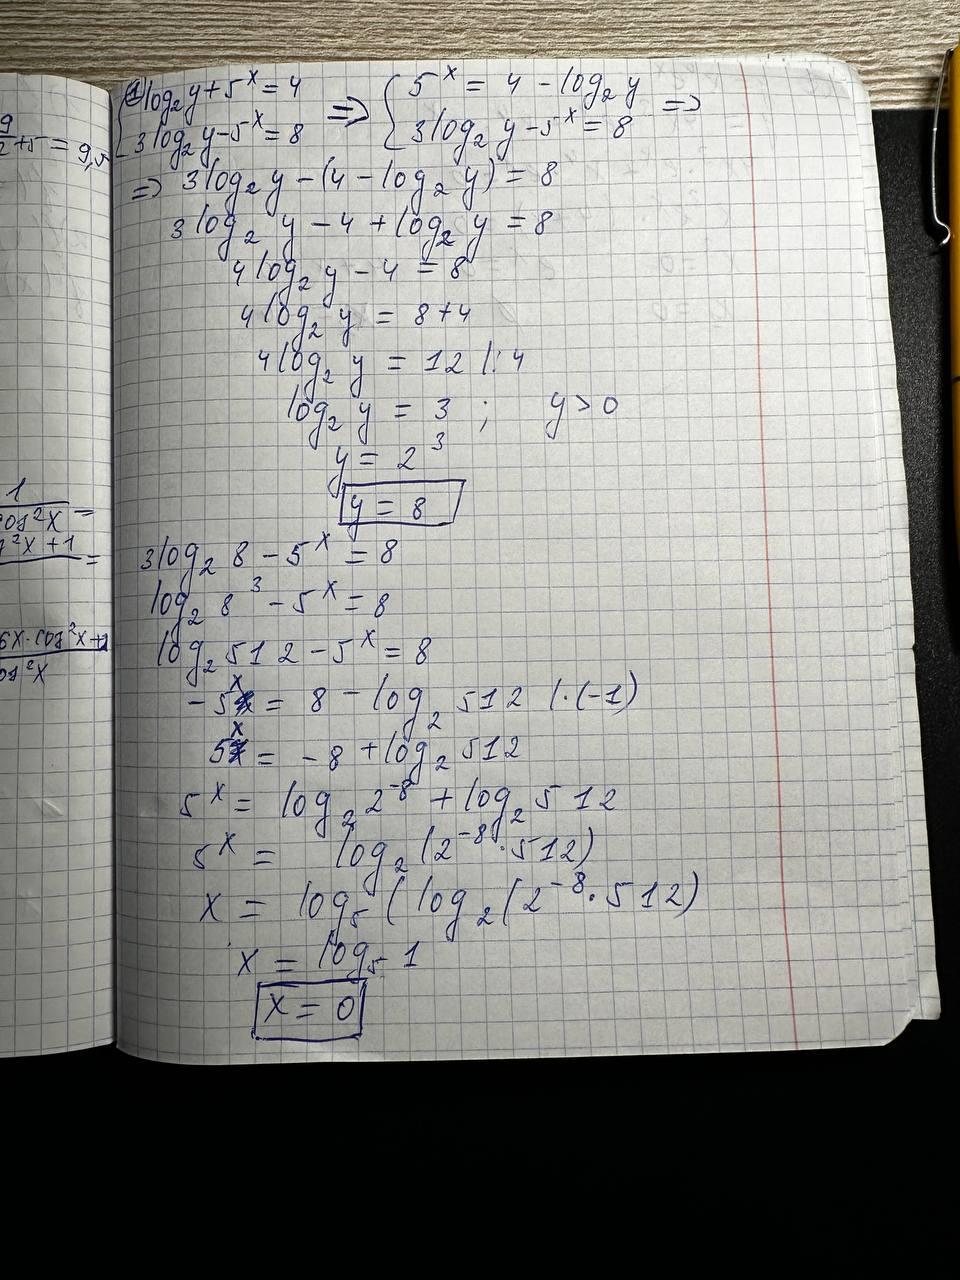 9/2 + 5 = 9,5
1/cos²x =
²x + 1 =
6x · cos²x + 1
cos²x
① { log₂y + 5ˣ = 4 => { 5ˣ = 4 - log₂y =>
3log₂y - 5ˣ = 8 3log₂y - 5ˣ = 8
=> 3log₂y - (4 - log₂y) = 8
3log₂y - 4 + log₂y = 8
4log₂y - 4 = 8
4log₂y = 8 + 4
4log₂y = 12 |:4
log₂y = 3 ; y > 0
y = 2³
y = 8
3log₂8 - 5ˣ = 8
log₂8³ - 5ˣ = 8
log₂512 - 5ˣ = 8
-5ˣ = 8 - log₂512 |·(-1)
5ˣ = -8 + log₂512
5ˣ = log₂2⁻⁸ + log₂512
5ˣ = log₂(2⁻⁸·512)
x = log₅(log₂(2⁻⁸·512)
x = log₅1
x = 0